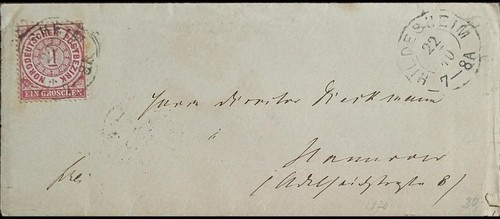 NORDDEUTSCHER POSTBEZIRK
1
EIN GROSCHEN
HILDESHEIM
22
10
7-8A
Herrn Director Dieckmann
Hannover
(Adelheidstraße 8)
frei.
1870
30.